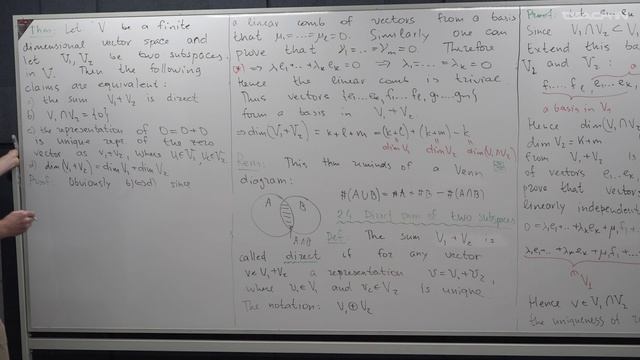 Thm. Let V be a finite
dimensional vector space and
let V₁, V₂ be two subspaces
in V. Then the following
claims are equivalent:
a) the sum V₁+V₂ is direct
b) V₁∩V₂={0}
c) the representation of 0=0+0
is unique repr of the zero
vector as v₁+v₂, where v₁∈V₁, v₂∈V₂
d) dim(V₁+V₂)=dim V₁+dim V₂
Proof. Obviously b)⇔d) since
a linear comb of vectors from a basis
that μ₁=…=μℓ=0. Similarly one can
prove that γ₁=…=γₘ=0. Therefore
(*) ⇒ λ₁e₁+…+λₖeₖ=0 ⇒ λ₁=…=λₖ=0
Hence the linear comb is trivial.
Thus vectors {e₁…eₖ, f₁…fℓ, g₁…gₘ}
form a basis in V₁+V₂
⇒ dim(V₁+V₂)=k+l+m=(k+l)+(k+m)-k
dim V₁ dim V₂ dim(V₁∩V₂)
Rem: This thm reminds of a Venn
diagram:
#(A∪B)=#A+#B-#(A∩B)
A B
A∩B
2.4 Direct sum of two subspaces
Def. The sum V₁+V₂ is
called direct if for any vector
v∈V₁+V₂ a representation v=v₁+v₂,
where v₁∈V₁ and v₂∈V₂ is unique
The notation: V₁⊕V₂
Proof: Let e₁…eₖ
Since V₁∩V₂⊂V₁
Extend this bas
V₂ and V₂ :
f₁…fℓ, e₁…eₖ,
a basis in V₁
Hence dim(V₁∩V
dim V₂=k+m
from V₁+V₂ is
of vectors e₁..eₖ,
prove that vector
linearly independent
0=λ₁e₁+..+λₖeₖ+μ₁f₁+
λ₁e₁+..+λₖeₖ+μ₁f₁+…
V₁
Hence v∈V₁∩V₂
the uniqueness of